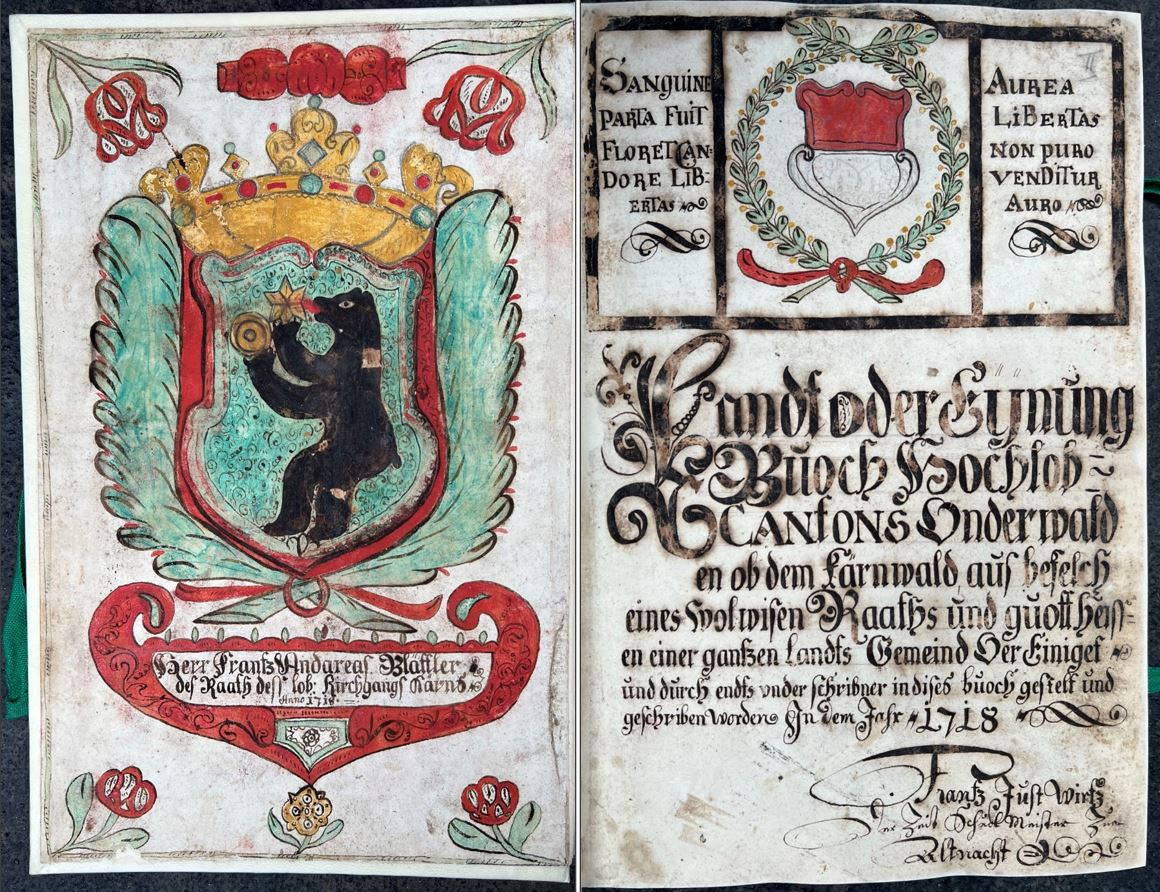 Herr Frantz Andareas Blättler
des Raath dess lob: Kirchgangs Kärns
Anno 1718
SANGUINE
PARTA FUIT
FLORET CAN=
DORE LIB=
ERTAS
AUREA
LIBERTAS
NON PURO
VENDITUR
AURO
II
Landt oder Eÿnŭng
Bŭoch Hochlob=
CANTONS Underwald
en ob dem Kärnwald aŭs befelch
eines Wolwisen Raaths ŭnd gŭott heiss=
en einer gantzen Landts Gemeind Ver Einiget
ŭnd dŭrch endts ŭnder schribner in dises bŭoch gestelt ŭnd
geschriben worden In dem Jahr 1718
Frantz Just Wirtz
Der Zeit Schŭel Meister Zŭe
Altnacht